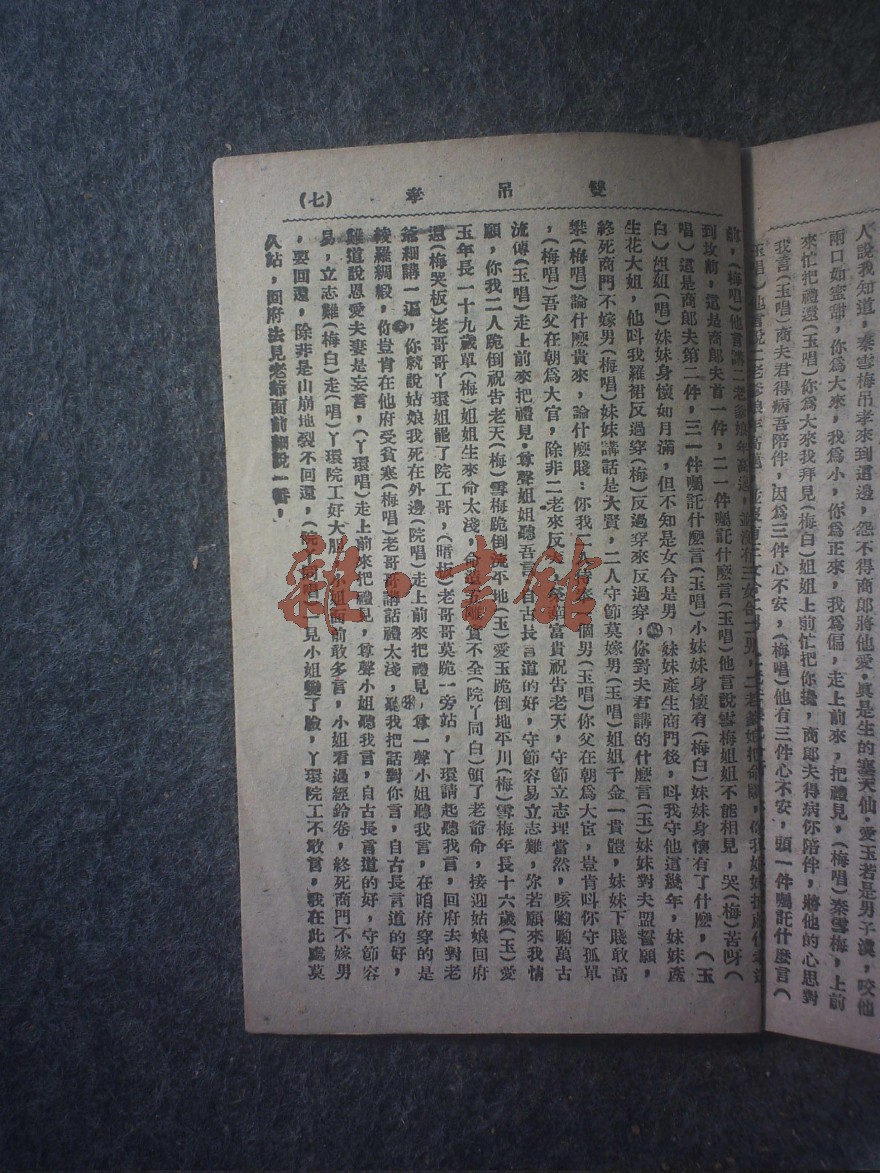 人說我知道，秦雪梅吊孝來到這邊，怨不得商郎將他愛，真是生的塞天仙，愛玉若是男子漢，咬他
兩口如蜜甜，你為大來，我為小，你為正來，我為偏，走上前來，把禮見，(梅唱)秦雪梅，上前
來忙把禮還(玉唱)你為大來我拜見(梅白)姐姐上前忙把你攙，商郎夫得病你陪伴，將他的心思對
我言(玉唱)商夫君得病吾陪伴，因為三件心不安，(梅唱)他有三件心不安，頭一件囑託什麼言(
玉唱)他言說二老爹娘年高邁
雙吊孝 (七)
(梅唱)他言講二老爹娘年高邁
到坟前，這是商郎夫首一件，二一件囑託什麼言(玉唱)他言說雪梅姐姐不能相見，哭(梅)苦呀(
唱)這是商郎夫第二件，三一件囑託什麼言(玉唱)小妹妹身懷有(梅白)妹妹身懷有了什麼，(玉
白)姐姐(唱)妹妹身懷如月滿，但不知是女合是男，妹妹產生商門後，叫我守他這幾年，妹妹產
生花大姐，他叫我羅裙反過穿(梅)反過穿來反過穿，你對夫君講的什麼言(玉)妹妹對夫盟誓願，
終死商門不嫁男(梅唱)妹妹講話是大賢，二人守節莫嫁男(玉唱)姐姐千金一貴體，妹妹下賤敢高
攀(梅唱)論什麼貴來，論什麼賤：你我二人侍奉一個男(玉唱)你父在朝為大官，豈肯叫你守孤單
，(梅唱)吾父在朝為大官，除非二老來反大，窮富貴祝告老天，守節立志理當然，咳喲喲萬古
流傳(玉唱)走上前來把禮見，尊聲姐姐聽吾言，自古長言道的好，守節容易立志難，你若願來我情
願，你我二人跪倒祝告老天(梅)雪梅跪倒流平地(玉)愛玉跪倒地平川(梅)雪梅年長十六歲(玉)愛
玉年長一十九歲單(梅)姐姐生來命太淺，命造五離貨不全(院丫同白)領了老爺命，接迎姑娘回府
還(梅哭板)老哥哥丫環姐罷了院工哥，(唱板)老哥哥莫跪一旁站，丫環請起聽我言，回府去對老
爺細講一遍，你就說姑娘我死在外邊(院唱)走上前來把禮見，尊一聲小姐聽我言，在咱府穿的是
綾羅綢緞，你豈肯在他府受貧寒(梅唱)老哥哥講話禮太淺，聽我把話對你言，自古長言道的好，
難道說恩愛夫妻是妄言，(丫環唱)走上前來把禮見，尊聲小姐聽我言，自古長言道的好，守節容
易，立志難(梅白)走(唱)丫環院工好大胆，小姐面前敢多言，小姐看過經給卷，終死商門不嫁男
，要回還，除非是山崩地裂不回還，(院丫同唱)一見小姐變了臉，丫環院工不敢言，我在此處莫
久站，回府去見老爺面前細說一番，
雜·書館